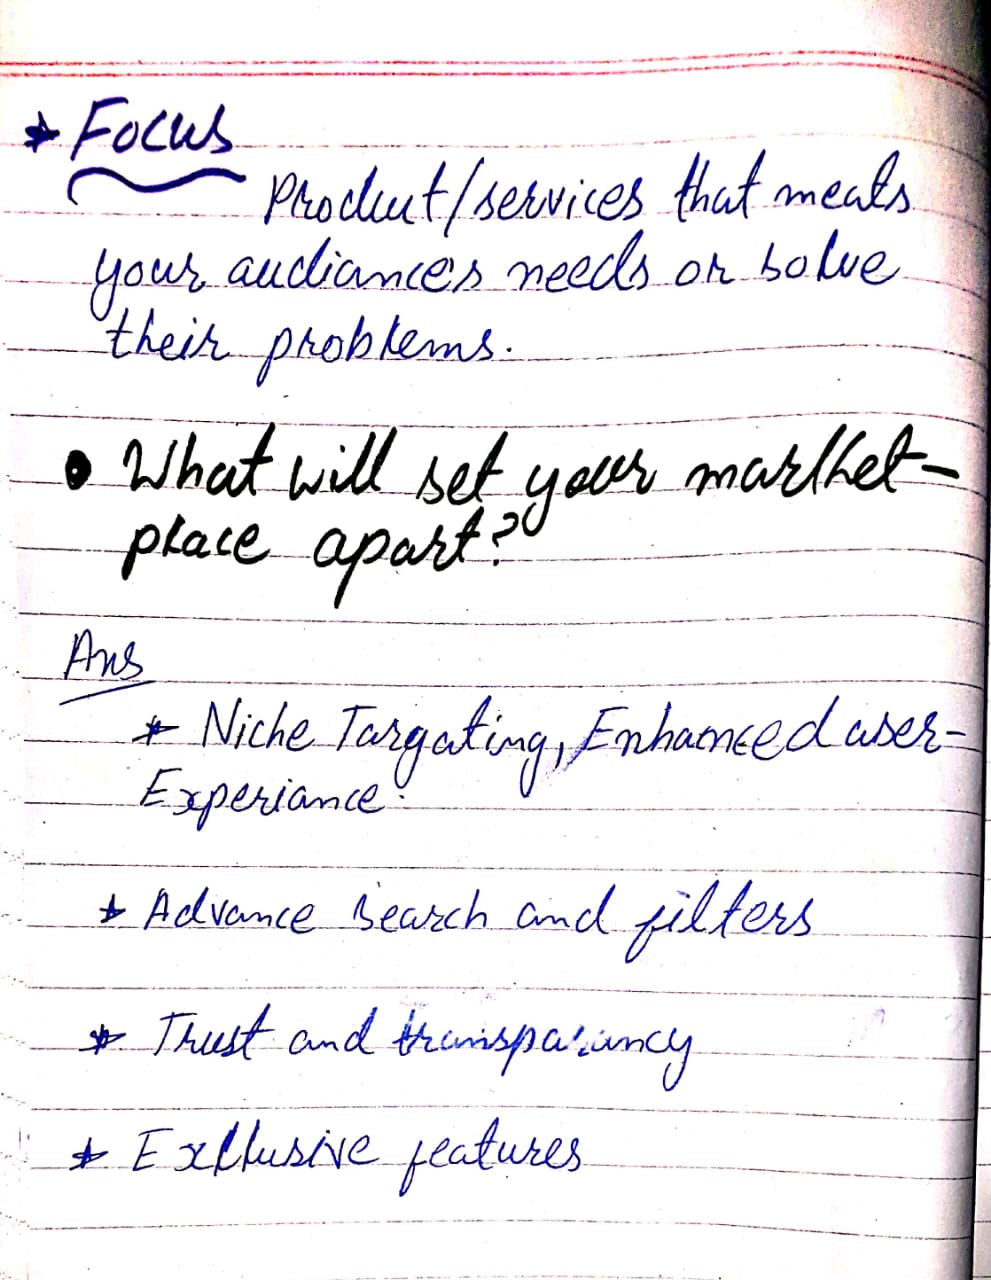 * Focus
Product/services that meats
your audiance's needs or solve
their problems.
• What will set your market-
place apart?
Ans
* Niche Targating, Enhanced user-
Experiance.
* Advance search and filters
* Trust and transparancy
* Exclusive features